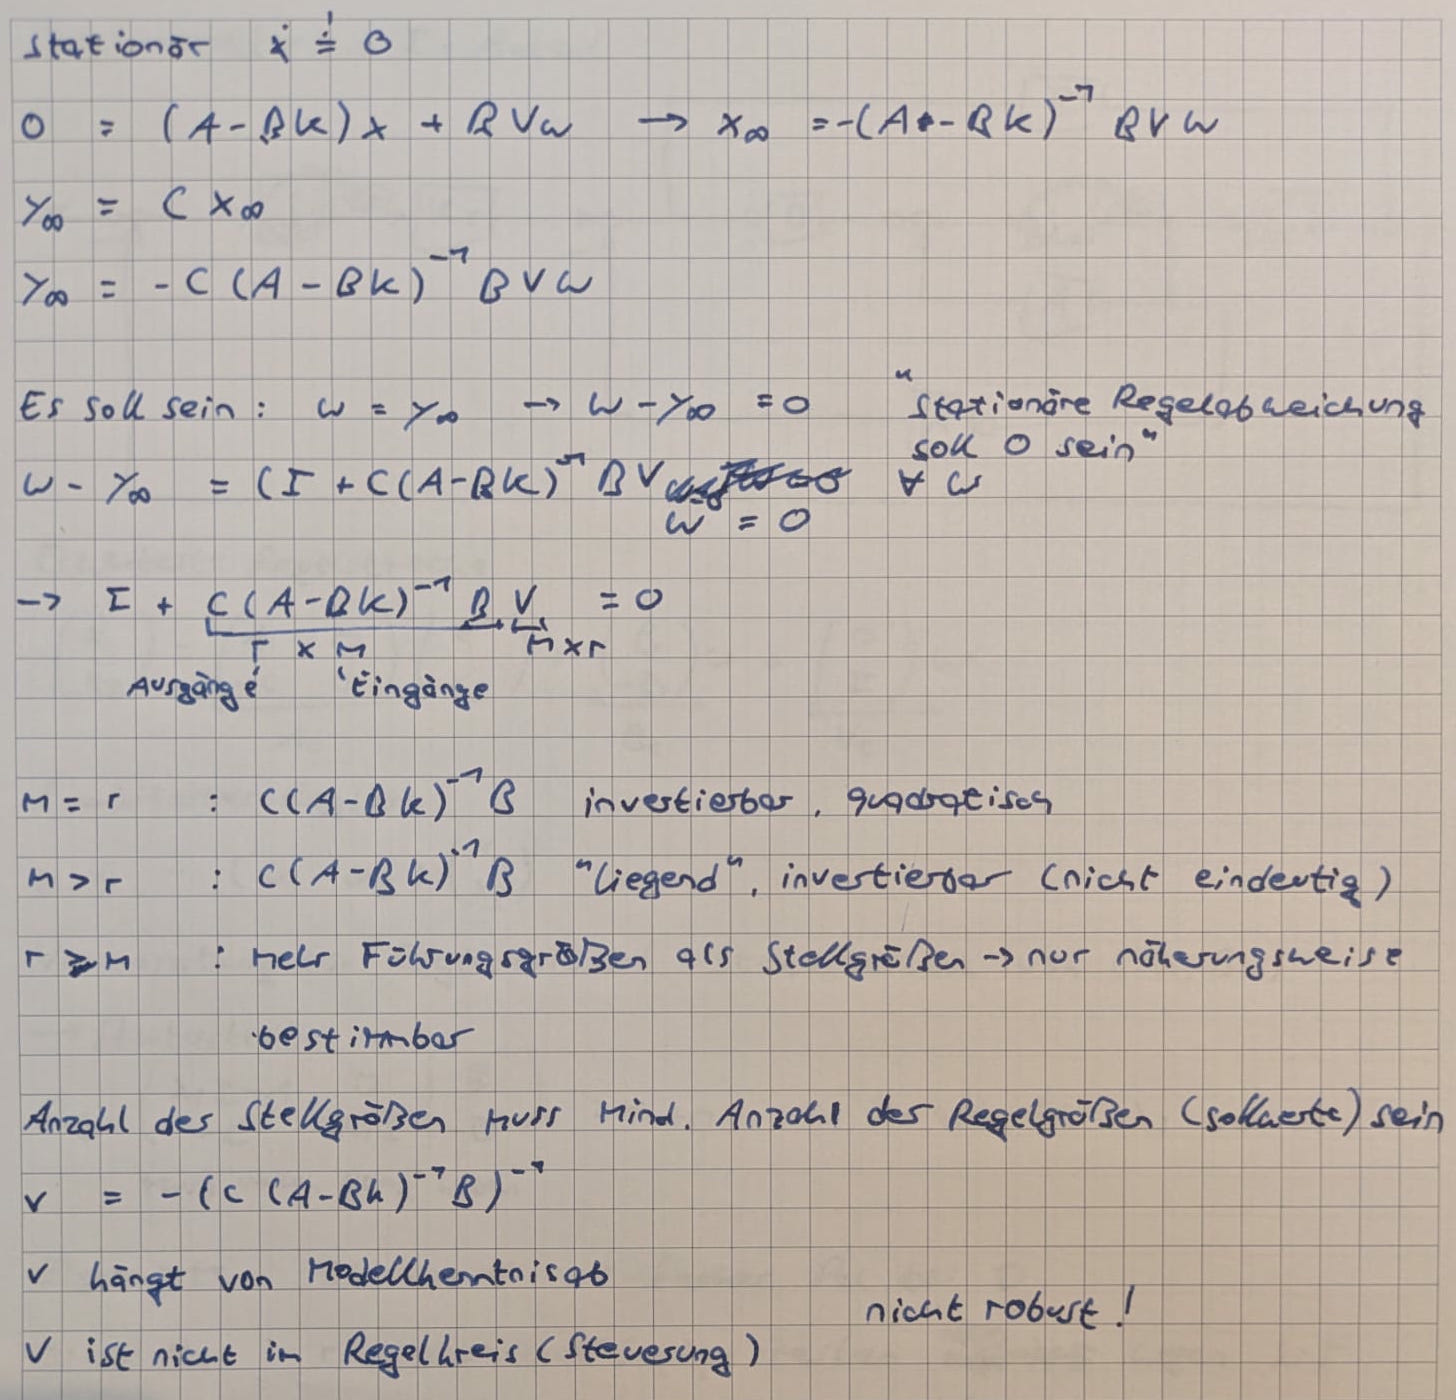 stationär ẋ != 0
0 = (A-BK)x + BVw → x∞ = -(A-BK)⁻¹ BVw
y∞ = C x∞
y∞ = -C (A-BK)⁻¹ BVw
Es soll sein: w = y∞ → w-y∞ = 0 "stationäre Regelabweichung
soll 0 sein"
w - y∞ = (I + C(A-BK)⁻¹ BV ∀ w
w = 0
→ I + C(A-BK)⁻¹ B V = 0
r x m m x r
Ausgänge Eingänge
m = r : C(A-BK)⁻¹B investierbar, quadratisch
m > r : C(A-BK)⁻¹B "liegend", investierbar (nicht eindeutig)
r > m : mehr Führungsgrößen als Stellgrößen → nur näherungsweise
bestimmbar
Anzahl des Stellgrößen muss mind. Anzahl der Regelgrößen (sollwerte) sein
V = -(C(A-BK)⁻¹B)⁻¹
V hängt von Modellkenntnis ab
nicht robust!
V ist nicht im Regelkreis (Steuerung)